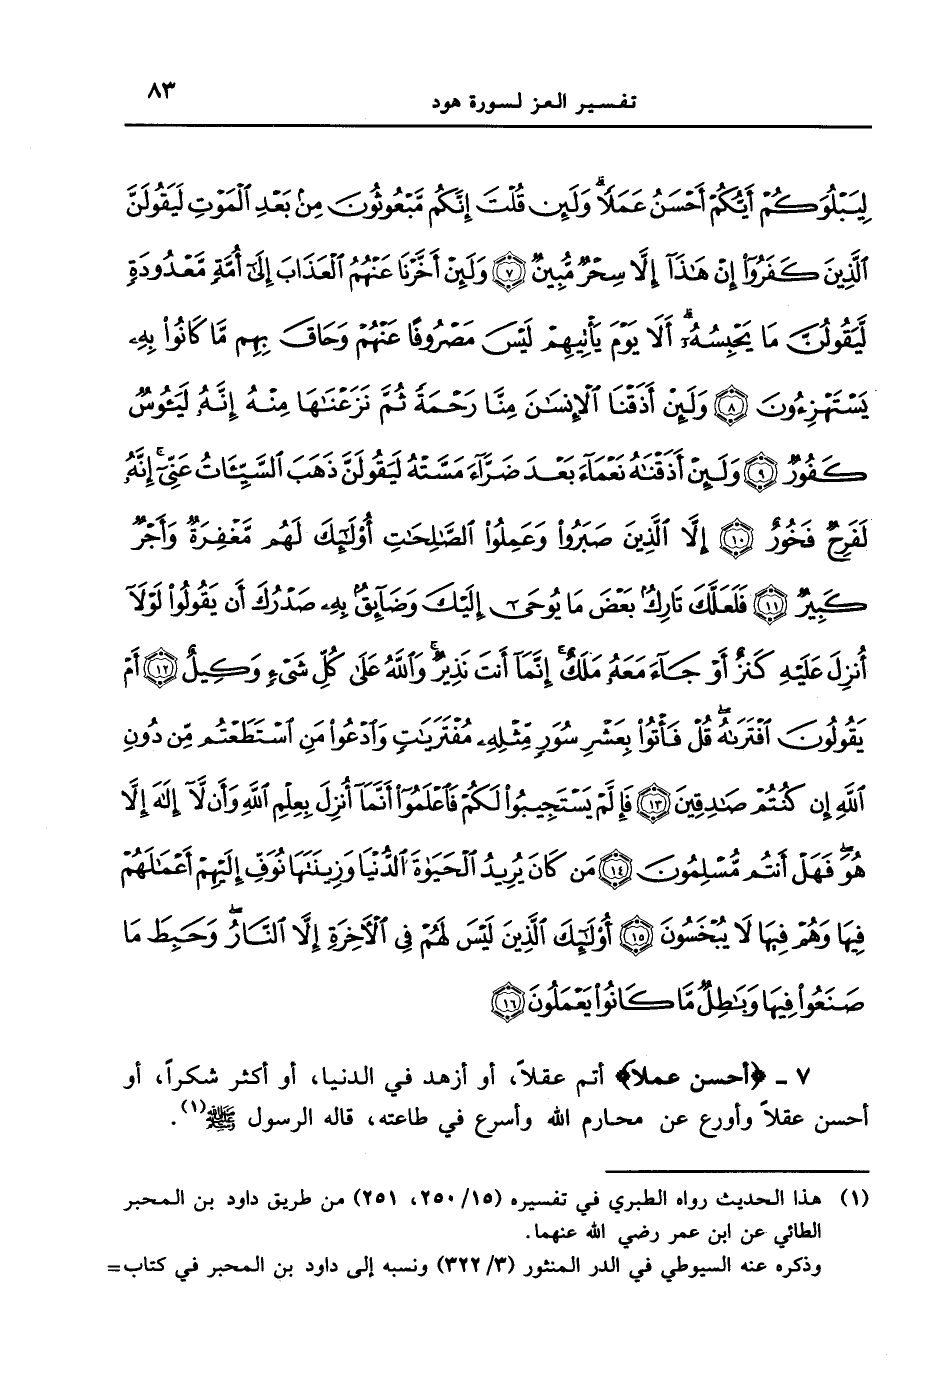 تفسير العز لسورة هود
٨٣
لِيَبْلُوَكُمْ أَيُّكُمْ أَحْسَنُ عَمَلًا ۗ وَلَئِن قُلْتَ إِنَّكُم مَّبْعُوثُونَ مِنۢ بَعْدِ ٱلْمَوْتِ لَيَقُولَنَّ
ٱلَّذِينَ كَفَرُوٓا۟ إِنْ هَٰذَآ إِلَّا سِحْرٌ مُّبِينٌ ﴿٧﴾ وَلَئِنْ أَخَّرْنَا عَنْهُمُ ٱلْعَذَابَ إِلَىٰٓ أُمَّةٍ مَّعْدُودَةٍ
لَّيَقُولُنَّ مَا يَحْبِسُهُۥٓ ۗ أَلَا يَوْمَ يَأْتِيهِمْ لَيْسَ مَصْرُوفًا عَنْهُمْ وَحَاقَ بِهِم مَّا كَانُوا۟ بِهِۦ
يَسْتَهْزِءُونَ ﴿٨﴾ وَلَئِنْ أَذَقْنَا ٱلْإِنسَٰنَ مِنَّا رَحْمَةً ثُمَّ نَزَعْنَٰهَا مِنْهُ إِنَّهُۥ لَيَـُٔوسٌ
كَفُورٌ ﴿٩﴾ وَلَئِنْ أَذَقْنَٰهُ نَعْمَآءَ بَعْدَ ضَرَّآءَ مَسَّتْهُ لَيَقُولَنَّ ذَهَبَ ٱلسَّيِّـَٔاتُ عَنِّىٓ ۚ إِنَّهُۥ
لَفَرِحٌ فَخُورٌ ﴿١٠﴾ إِلَّا ٱلَّذِينَ صَبَرُوا۟ وَعَمِلُوا۟ ٱلصَّٰلِحَٰتِ أُو۟لَٰٓئِكَ لَهُم مَّغْفِرَةٌ وَأَجْرٌ
كَبِيرٌ ﴿١١﴾ فَلَعَلَّكَ تَارِكٌۢ بَعْضَ مَا يُوحَىٰٓ إِلَيْكَ وَضَآئِقٌۢ بِهِۦ صَدْرُكَ أَن يَقُولُوا۟ لَوْلَآ
أُنزِلَ عَلَيْهِ كَنزٌ أَوْ جَآءَ مَعَهُۥ مَلَكٌ ۚ إِنَّمَآ أَنتَ نَذِيرٌ ۚ وَٱللَّهُ عَلَىٰ كُلِّ شَىْءٍ وَكِيلٌ ﴿١٢﴾ أَمْ
يَقُولُونَ ٱفْتَرَىٰهُ ۖ قُلْ فَأْتُوا۟ بِعَشْرِ سُوَرٍ مِّثْلِهِۦ مُفْتَرَيَٰتٍ وَٱدْعُوا۟ مَنِ ٱسْتَطَعْتُم مِّن دُونِ
ٱللَّهِ إِن كُنتُمْ صَٰدِقِينَ ﴿١٣﴾ فَإِلَّمْ يَسْتَجِيبُوا۟ لَكُمْ فَٱعْلَمُوٓا۟ أَنَّمَآ أُنزِلَ بِعِلْمِ ٱللَّهِ وَأَن لَّآ إِلَٰهَ إِلَّا
هُوَ ۖ فَهَلْ أَنتُم مُّسْلِمُونَ ﴿١٤﴾ مَن كَانَ يُرِيدُ ٱلْحَيَوٰةَ ٱلدُّنْيَا وَزِينَتَهَا نُوَفِّ إِلَيْهِمْ أَعْمَٰلَهُمْ
فِيهَا وَهُمْ فِيهَا لَا يُبْخَسُونَ ﴿١٥﴾ أُو۟لَٰٓئِكَ ٱلَّذِينَ لَيْسَ لَهُمْ فِى ٱلْـَٔاخِرَةِ إِلَّا ٱلنَّارُ ۖ وَحَبِطَ مَا
صَنَعُوا۟ فِيهَا وَبَٰطِلٌ مَّا كَانُوا۟ يَعْمَلُونَ ﴿١٦﴾
٧ ـ ﴿أحسن عملاً﴾ أتم عقلاً، أو أزهد في الدنيا، أو أكثر شكراً، أو
أحسن عقلاً وأورع عن محارم الله وأسرع في طاعته، قاله الرسول ﷺ(١).
(١) هذا الحديث رواه الطبري في تفسيره (١٥/ ٢٥٠، ٢٥١) من طريق داود بن المحبر
الطائي عن ابن عمر رضي الله عنهما.
وذكره عنه السيوطي في الدر المنثور (٣/ ٣٢٢) ونسبه إلى داود بن المحبر في كتاب=